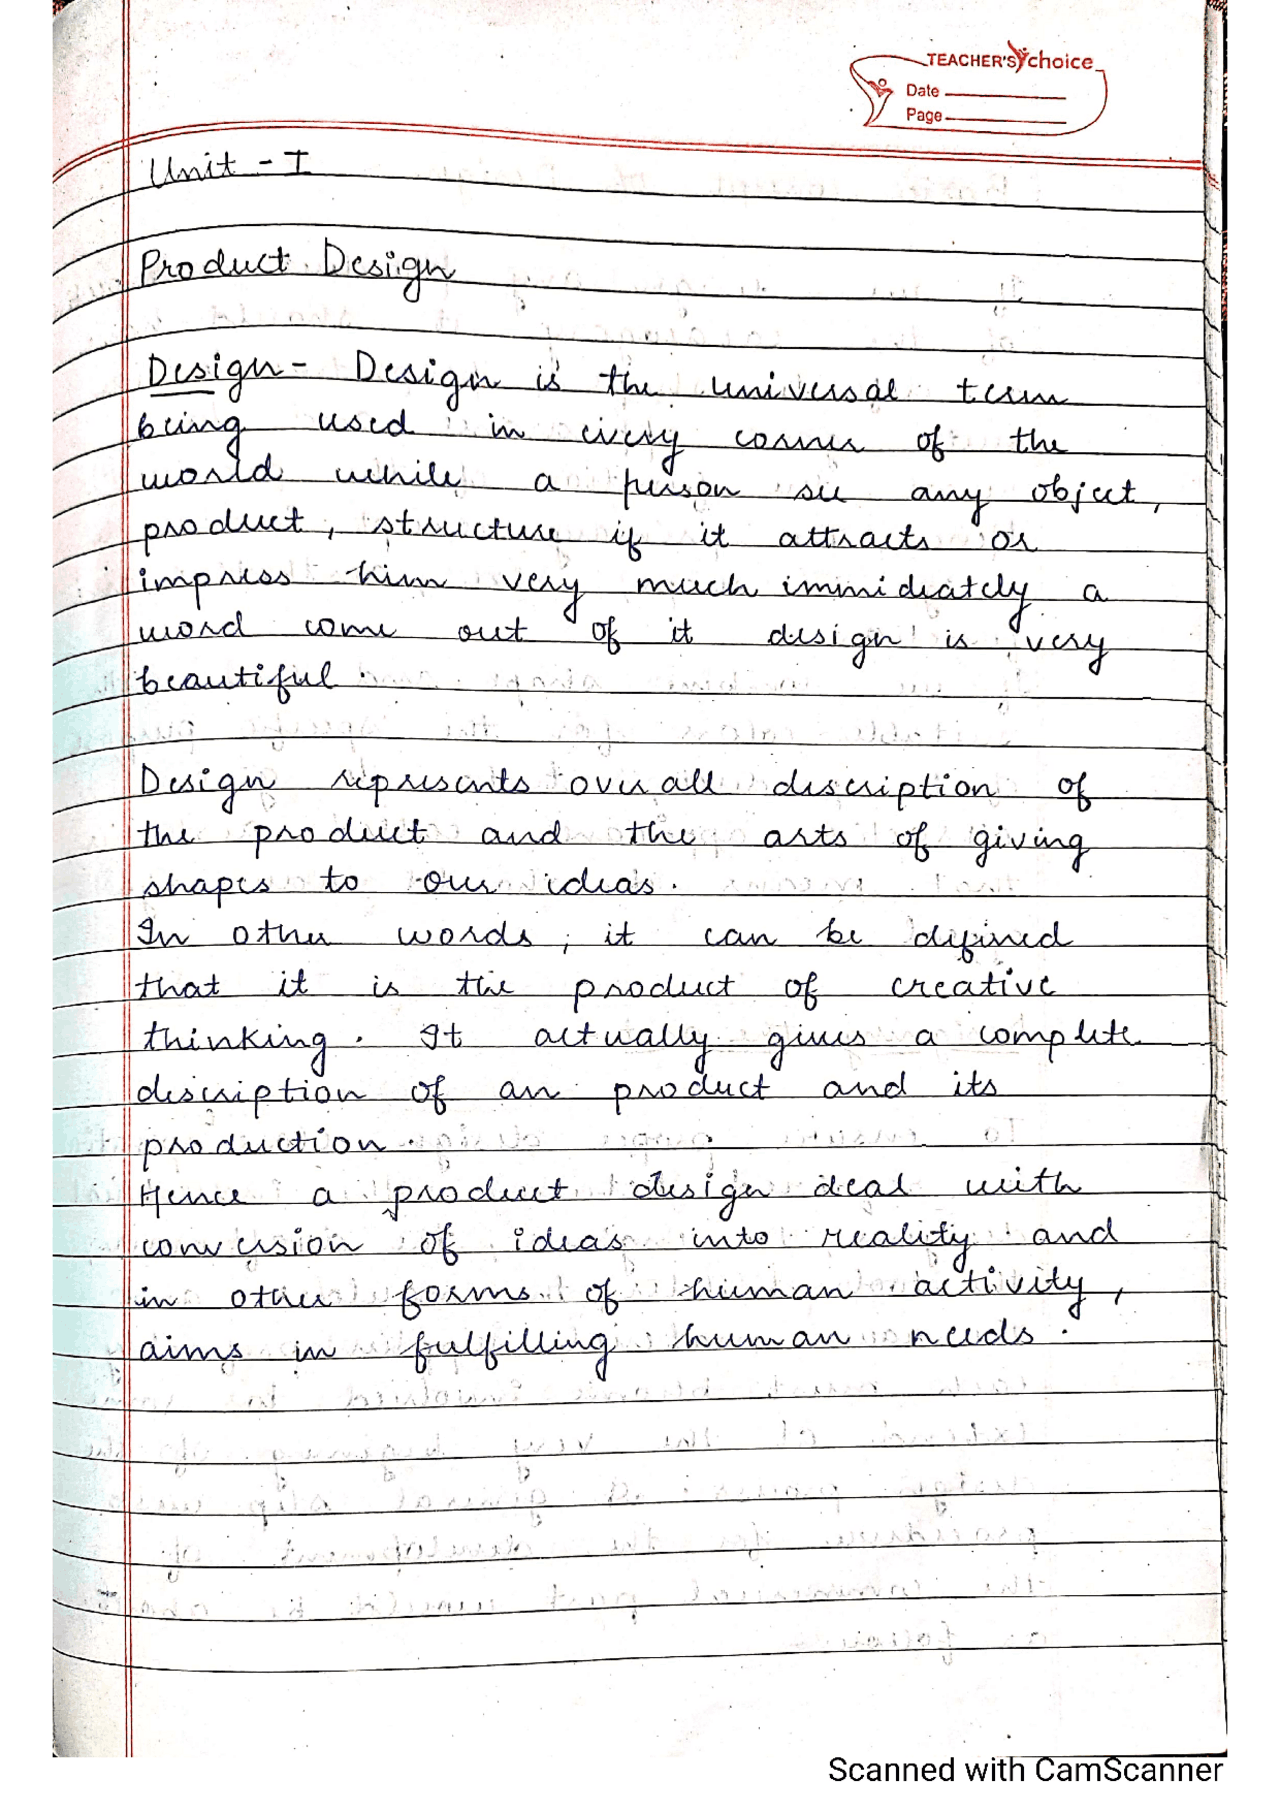 TEACHER'S choice
Date
Page
Unit - I
Product Design
Design - Design is the universal term
being used in every corner of the
world while a person see any object,
product, structure if it attracts or
impress him very much immidiately a
word come out of it design is very
beautiful
Design represents over all description of
the product and the arts of giving
shapes to our ideas.
In other words, it can be defined
that it is the product of creative
thinking. It actually gives a complete
description of an product and its
production.
Hence a product design deal with
conversion of ideas into reality and
in other forms of human activity,
aims in fulfilling human needs.
Scanned with CamScanner